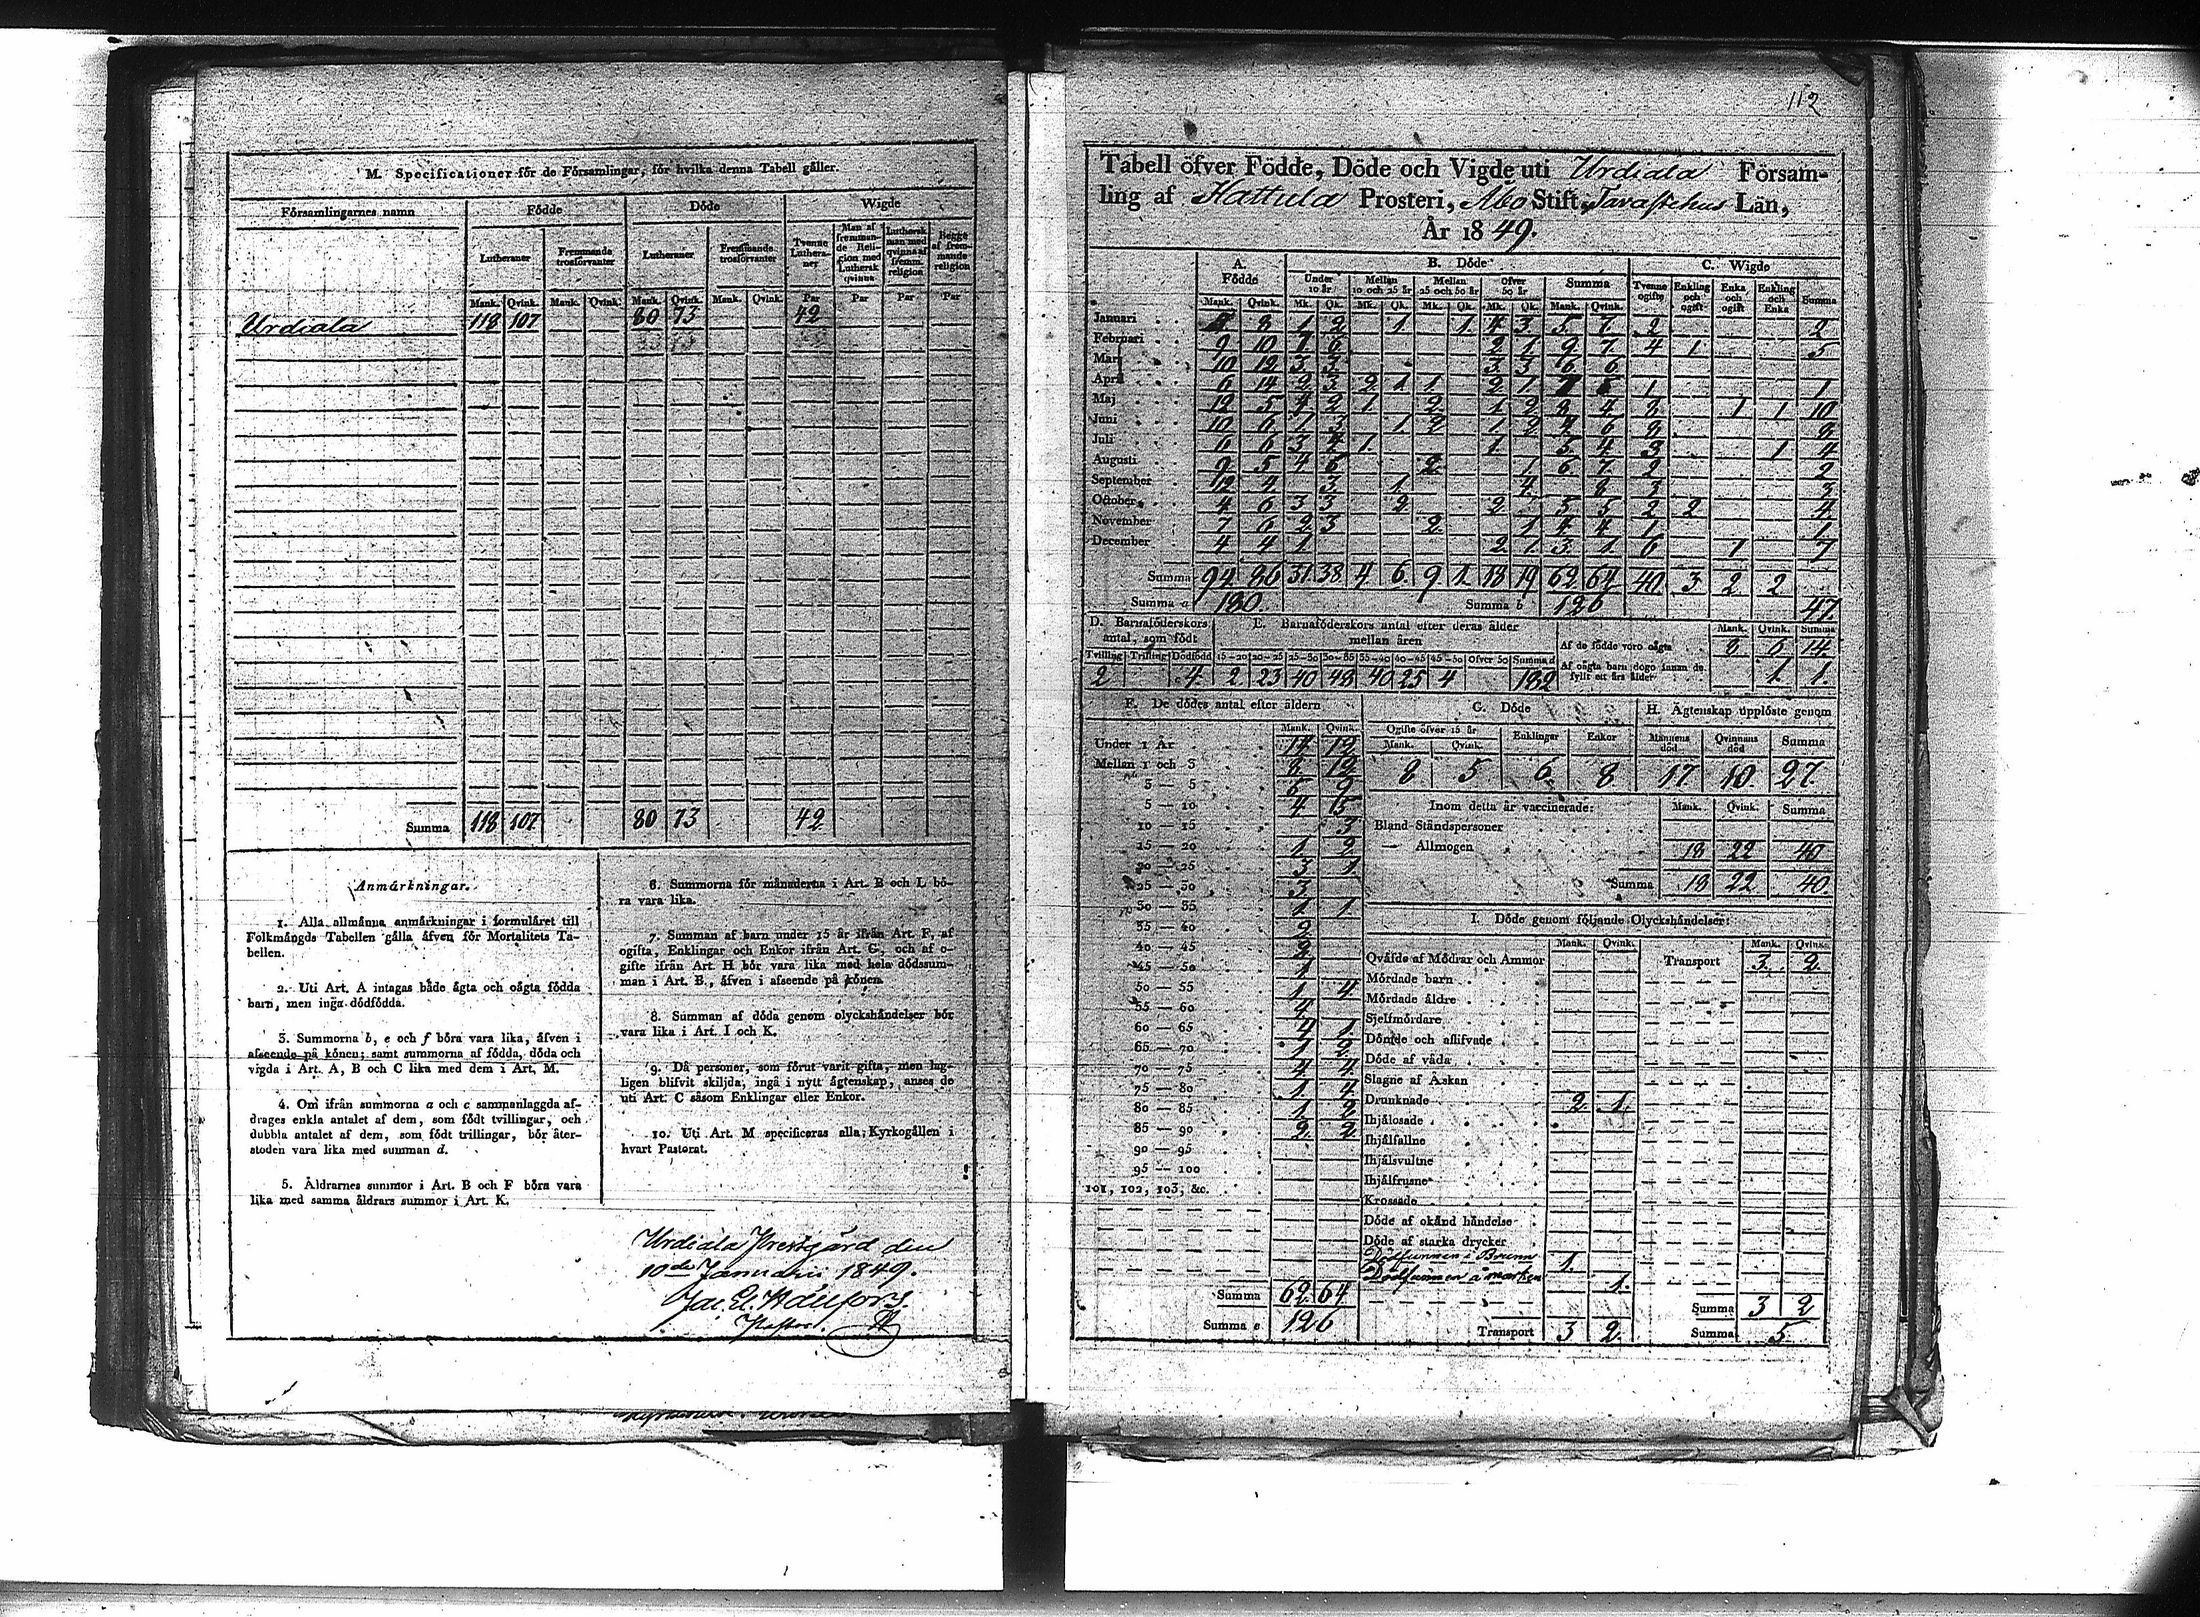 M. Specificationer för de Församlingar, för hvilka denna Tabell gäller.
Församlingarnes namn Födde Döde Wigde
Lutheraner Fremmande trosförvanter Lutheraner Fremmande trosförvanter Tvenne Lutheraner Man af fremmande Religion med Luthersk qvinna Luthersk man med qvinna af fremm. religion Begge af fremmande religion
Mank. Qvink. Mank. Qvink. Mank. Qvink. Mank. Qvink. Par Par Par Par
Urdiala 118 107 80 73 42
Summa 118 107 80 73 42
Anmärkningar.
1. Alla allmänna anmärkningar i formuläret till
Folkmängds Tabellen gälla äfven för Mortalitets Ta-
bellen.
2. Uti Art. A intagas både ägta och oägta födda
barn, men inga dödfödda.
3. Summorna b, e och f böra vara lika, äfven i
afseende på könen; samt summorna af födda, döda och
vigda i Art. A, B och C lika med dem i Art. M.
4. Om ifrån summorna a och c sammanlaggda af-
drages enkla antalet af dem, som födt tvillingar, och
dubbla antalet af dem, som födt trillingar, bör åter-
stoden vara lika med summan d.
5. Åldrarnes summor i Art. B och F böra vara
lika med samma åldrars summor i Art. K.
6. Summorna för månaderna i Art. B och L bö-
ra vara lika.
7. Summan af barn under 15 år ifrån Art. F, af
ogifta, Enklingar och Enkor ifrån Art. G, och af o-
gifte ifrån Art. H bör vara lika med hela dödssum-
man i Art. B., äfven i afseende på könen.
8. Summan af döda genom olyckshändelser bör
vara lika i Art. I och K.
9. Då personer, som förut varit gifta, men lag-
ligen blifvit skiljda, ingå i nytt ägtenskap, anses de
uti Art. C såsom Enklingar eller Enkor.
10. Uti Art. M specificeras alla Kyrkogällen i
hvart Pastorat.
Urdiala Prestgård den
10de Januarii 1849.
112
Tabell öfver Födde, Döde och Vigde uti Urdiala Försam-
ling af Hattula Prosteri, Åbo Stift, Tavastehus Län,
År 1849.
A. Födde B. Döde C. Wigde
Under 10 år Mellan 10 och 25 år Mellan 25 och 50 år Öfver 50 år Summa Tvenne ogifte Enkling och ogift Enka och ogift Enkling och Enka Summa
Mank. Qvink. Mk. Qk. Mk. Qk. Mk. Qk. Mk. Qk. Mank. Qvink.
Januari 8 1 2 1 1 4 3 5 7 2 2
Februari 9 10 7 6 2 1 9 7 4 1 5
Mars 10 12 3 3 3 3 6 6
April 6 14 2 3 2 1 1 2 1 7 5 1 1
Maj 12 5 4 2 1 2 1 2 8 4 8 1 1 10
Juni 10 6 1 3 1 2 1 2 4 6 8 8
Juli 6 6 3 4 1 1 5 4 3 1 4
Augusti 9 5 4 6 2 1 6 7 2 2
September 12 4 3 1 4 8 3 3
October 4 6 3 3 2 2 5 5 2 2 4
November 7 6 2 3 2 1 4 4 1 1
December 4 4 1 2 1 3 1 6 1 7
Summa 94 86 31 38 4 6 9 1 18 19 62 64 40 3 2 2
Summa a 180 Summa b 126 47
D. Barnaföderskors antal, som födt E. Barnaföderskors antal efter deras ålder mellan åren
Mank. Qvink. Summa
Af de födde voro oägta 8 6 14
Tvilling Trilling Dödfödd 15-20 20-25 25-30 30-35 35-40 40-45 45-50 Öfver 50 Summa d
Af oägta barn dogo innan de fyllt ett års ålder 1 1
2 4 2 23 40 48 40 25 4 182
F. De dödes antal efter åldern G. Döde H. Ägtenskap upplöste genom
Mank. Qvink. Ogifte öfver 15 år Enklingar Enkor Mannens död Qvinnans död Summa
Mank. Qvink.
8 5 6 8 17 10 27
Under 1 År 17 12
Mellan 1 och 3 8 12
3 — 5 9
5 — 10 4 15
10 — 15 3
15 — 20 1 2
20 — 25 3 1
25 — 30 3
30 — 35 1 1
35 — 40 2
40 — 45
45 — 50 1
50 — 55 1 4
55 — 60 4
60 — 65 4 1
65 — 70 1 2
70 — 75 4 4
75 — 80 1 4
80 — 85 1 2
85 — 90 2 2
90 — 95
95 — 100
101, 102, 103, &c.
Summa 62 64
Summa e 126
Inom detta år vaccinerade: Mank. Qvink. Summa
Bland Ståndspersoner
— Allmogen 18 22 40
Summa 18 22 40
I. Döde genom följande Olyckshändelser:
Mank. Qvink. Mank. Qvink.
Qväfde af Mödrar och Ammor Transport 3 2
Mördade barn
Mördade äldre
Sjelfmördare
Dömde och aflifvade
Döde af våda
Slagne af Åskan
Drunknade 2 1
Ihjälosade
Ihjälfallne
Ihjälsvultne
Ihjälfrusne
Krossade
Döde af okänd händelse
Döde af starka drycker
Dödfunnen i Brunn 1
Dödfunnen å marken 1
Summa 3 2
Transport 3 2 Summa 5